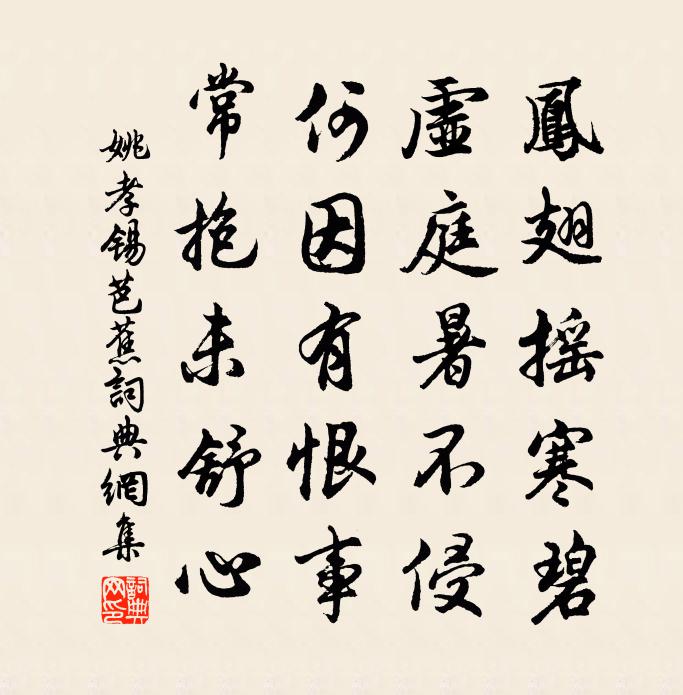 鳳翅搖寒碧
虛庭暑不侵
何因有恨事
常抱未舒心
姚孝錫芭蕉詞典網集
詞典
網印